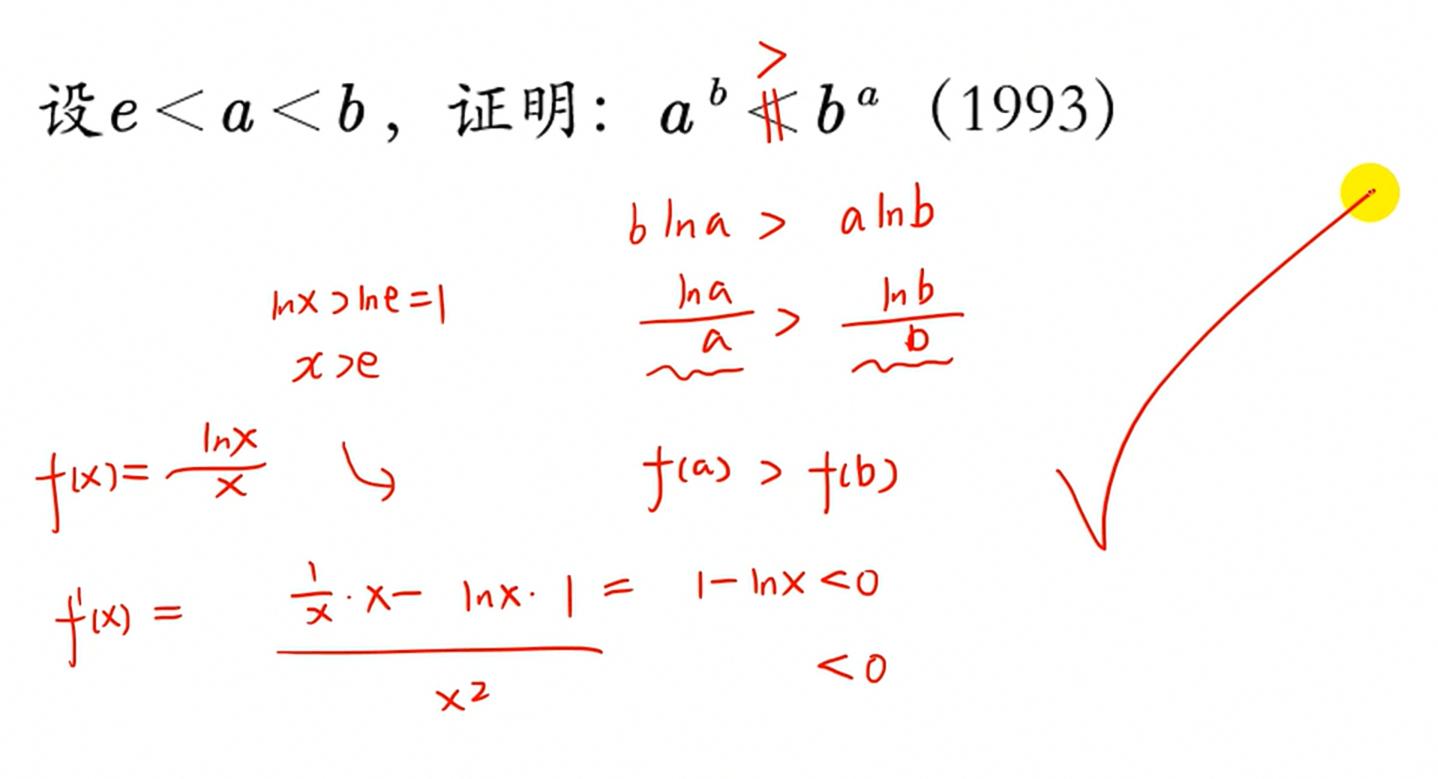 >
设e<a<b，证明：a^b < b^a（1993）
b ln a > a ln b
ln x > ln e = 1
ln a / a > ln b / b
x > e
f(x) = ln x / x ↘
f(a) > f(b)
f'(x) = (1/x · x − ln x · 1) / x² = 1 − ln x < 0
< 0